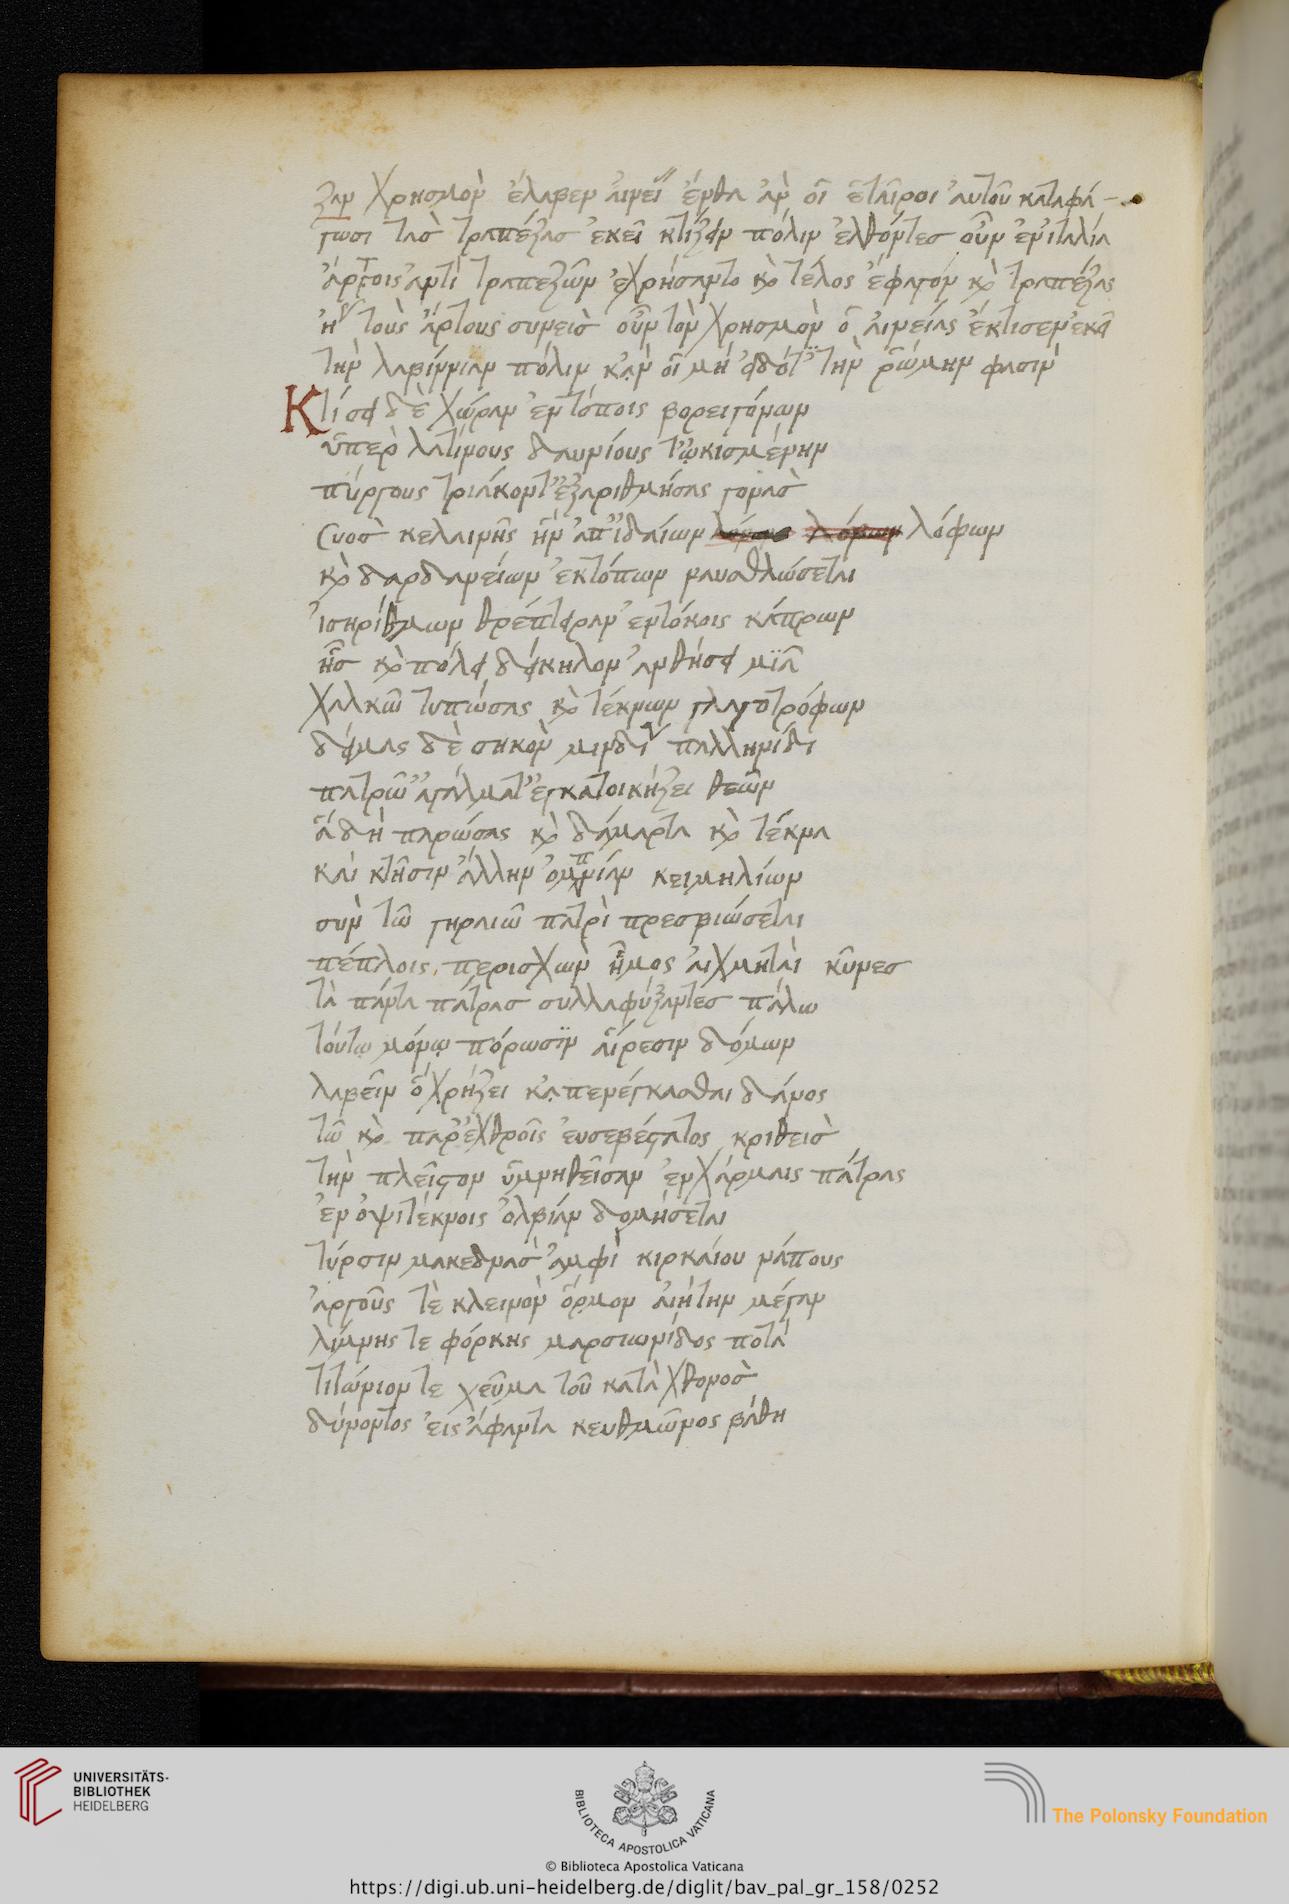 ξαν χρησμὸν ἔλαβεν αἰνεί ἔνθα ἂν οἱ ἑταῖροι αὐτοῦ καταφά-
γωσι τὰσ τραπέζασ ἐκεῖ κτίζειν πόλιν ἐλθόντεσ οὖν ἐν ἰταλία
ἄρτοις ἀντὶ τραπεζῶν ἐχρήσαντο κ τέλος ἔφαγον κ τραπέζας
τοὺς ἄρτους συνεὶσ οὖν τὸν χρησμὸν ὁ αἰνείας ἔκτισεν ἐκεῖ
τὴν λαβίννιαν πόλιν κἂν οἱ μὴ εἰδότ τὴν ῥώμην φασιν
Κτίσει δὲ χώραν ἐν τόποις βορειγόνων
ὑπὲρ λατίνους δαυνίους τ' ᾠκισμένην
πύργους τριάκοντ' ἐξαριθμήσας γονὰσ
συοσ κελαινῆς ἣν ἀπ' ἰδαίων λόφων
κ δαρδανείων ἐκ τόπων ναυσθλώσεται
ἰσηρίθμων θρέπτειραν ἐν τόκοις κάπρων
ἧσ κ πόλει δείκηλον ἀνθήσει μϊᾶ
χαλκῶ τυπώσας κ τέκνων γλαγοτρόφων
δείμας δὲ σηκὸν μυνδί παλληνίδι
πατρῶ' ἀγάλματ' ἐγκατοικήζει θεῶν
ἃ δὴ παρώσας κ δάμαρτα κ τέκνα
καὶ κτῆσιν ἄλλην ὀμπνίαν κειμηλίων
σὺν τῶ γηραιῶ πατρὶ πρεσβιώσεται
πέπλοις περισχὼν ἦμος αἰχμηταὶ κῦνεσ
τὰ πάντα πάτρασ συλλαφύξαντεσ πάλω
τούτῳ μόνῳ πόρωσϊν αἵρεσιν δόμων
λαβεῖν ὃ χρήζει κἀπενέγκασθαι δάνος
τῶ κ παρ' ἐχθροῖς εὐσεβέστατος κριθεὶσ
τὴν πλεῖστον ὑμνηθεῖσαν ἐν χάρμαις πάτρας
ἐν ὀψιτέκνοις ὀλβίαν δομήσεται
τύρσιν μακεδνὰσ ἀμφὶ κιρκαίου νάπους
ἀργοῦς τὲ κλεινὸν ὅρμον αἰήτην μέγαν
λίμνης τε φόρκης μαρσιωνίδος ποτά
τιτώνιον τε χεῦμα τοῦ κατὰ χθονοσ
δύνοντος εἰς ἄφαντα κευθμῶνος βάθη
UNIVERSITÄTS-
BIBLIOTHEK
HEIDELBERG
BIBLIOTECA APOSTOLICA VATICANA
The Polonsky Foundation
© Biblioteca Apostolica Vaticana
https://digi.ub.uni-heidelberg.de/diglit/bav_pal_gr_158/0252